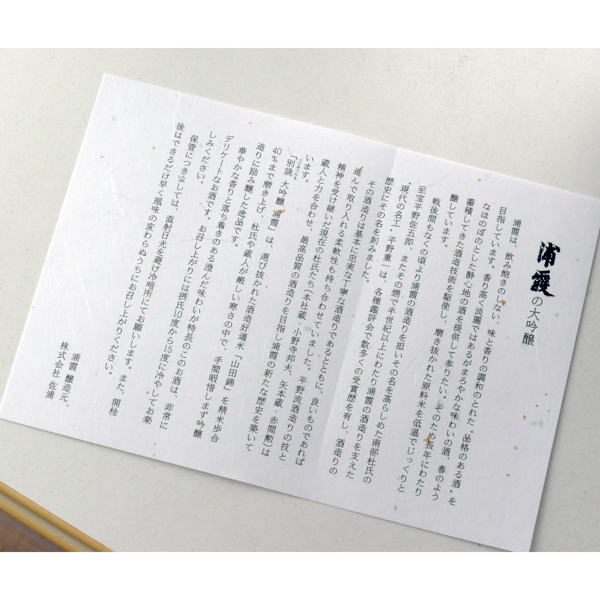 浦霞の大吟醸
浦霞は、飲み飽きのしない、味と香りの調和のとれた"品格のある酒"を
目指しています。香り高く淡麗ではあるがまろやかな味わいの酒、春のよう
なほのぼのとした酔心地の酒を提供して参りたい。そのため長年にわたり
蓄積してきた酒造技術を駆使し、磨き抜かれた原料米を低温でじっくりと
醸しています。
戦後間もなくの頃より浦霞の酒造りを担いその名を高らしめた南部杜氏の
至宝平野佐五郎、またその甥で半世紀以上にわたり浦霞の酒造りを支えた
"現代の名工"平野重一は、各種鑑評会で数多くの受賞歴を有し、酒造りの
歴史にその名を刻みました。
その酒造りは基本に忠実な丁寧な酒造りであるとともに、良いものであれば
進んで取り入れる柔軟性も持ち合わせていました。平野流酒造りの技と
精神を受け継いだ現在の杜氏たち(本社蔵、小野寺邦夫、矢本蔵、赤間勲)は
蔵人と力を合わせ、最高品質の酒造りを目指し浦霞の新たな歴史を築いて
います。
「別誂 大吟醸 浦霞」は、選び抜かれた酒造好適米「山田錦」を精米歩合
40%まで磨き上げ、杜氏や蔵人が厳しい寒さの中で、手間暇惜しまず吟醸
造りに励み醸した逸品です。
華やかな香りと落ち着きのある澄んだ味わいが特長のこのお酒は、非常に
デリケートなお酒です。お召し上がりには摂氏10度から15度に冷やしてお楽
しみください。
保管につきましては、直射日光を避け冷暗所にてお願いします。また、開栓
後はできるだけ早く、風味の変わらぬうちにお召し上がりください。
浦霞 醸造元
株式会社 佐浦